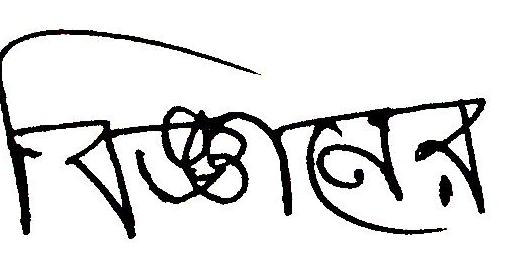 বিজ্ঞানের